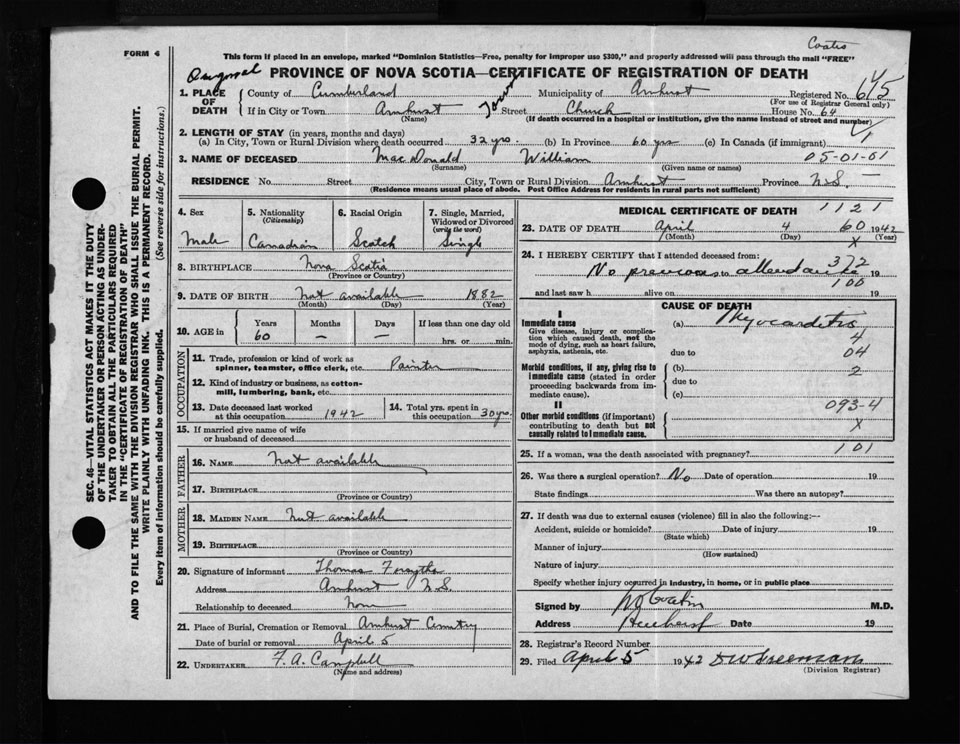 Coates
FORM 4
This form if placed in an envelope, marked "Dominion Statistics—Free, penalty for improper use $300," and properly addressed will pass through the mail "FREE"
Original
PROVINCE OF NOVA SCOTIA—CERTIFICATE OF REGISTRATION OF DEATH
1. PLACE OF DEATH County of Cumberland Municipality of Amherst Registered No. 645
(For use of Registrar General only)
If in City or Town Amherst Town Street Church House No. 64
(Name) (If death occurred in a hospital or institution, give the name instead of street and number)
2. LENGTH OF STAY (in years, months and days)
(a) In City, Town or Rural Division where death occurred 32 yrs (b) In Province 60 yrs (c) In Canada (if immigrant)
3. NAME OF DECEASED MacDonald William 05-01-01
(Surname) (Given name or names)
RESIDENCE No. Street City, Town or Rural Division Amherst Province N.S.
(Residence means usual place of abode. Post Office Address for residents in rural parts not sufficient)
4. Sex Male
5. Nationality (Citizenship) Canadian
6. Racial Origin Scotch
7. Single, Married, Widowed or Divorced (write the word) Single
8. BIRTHPLACE Nova Scotia
(Province or Country)
9. DATE OF BIRTH Not available 1882
(Month) (Day) (Year)
10. AGE in Years Months Days If less than one day old
60 — — hrs. or min.
OCCUPATION
11. Trade, profession or kind of work as spinner, teamster, office clerk, etc. Painter
12. Kind of industry or business, as cotton-mill, lumbering, bank, etc.
13. Date deceased last worked at this occupation 1942
14. Total yrs. spent in this occupation 30 yrs.
15. If married give name of wife or husband of deceased
FATHER
16. NAME Not available
17. BIRTHPLACE
(Province or Country)
MOTHER
18. MAIDEN NAME Not available
19. BIRTHPLACE
(Province or Country)
20. Signature of informant Thomas Forsythe
Address Amherst N.S.
Relationship to deceased None
21. Place of Burial, Cremation or Removal Amherst Cemetry
Date of burial or removal April 5
22. UNDERTAKER F. A. Campbell
(Name and address)
MEDICAL CERTIFICATE OF DEATH 1121
23. DATE OF DEATH April 4 60 1942
(Month) (Day) X (Year)
24. I HEREBY CERTIFY that I attended deceased from: 372
No previous to attendance 19
100
and last saw h alive on 19
CAUSE OF DEATH
I
Immediate cause
Give disease, injury or complication which caused death, not the mode of dying, such as heart failure, asphyxia, asthenia, etc.
(a) Myocarditis
4
due to 04
Morbid conditions, if any, giving rise to immediate cause (stated in order proceeding backwards from immediate cause).
(b) 2
due to
(c)
II
093-4
Other morbid conditions (if important) contributing to death but not causally related to immediate cause.
X
25. If a woman, was the death associated with pregnancy? 101
26. Was there a surgical operation? No Date of operation 19
State findings Was there an autopsy?
27. If death was due to external causes (violence) fill in also the following:—
Accident, suicide or homicide? Date of injury 19
(State which)
Manner of injury
(How sustained)
Nature of injury
Specify whether injury occurred in industry, in home, or in public place
Signed by M.D.
Address Amherst Date 19
28. Registrar's Record Number
29. Filed April 5 1942 D W Freeman
(Division Registrar)
SEC. 46—VITAL STATISTICS ACT MAKES IT THE DUTY
OF THE UNDERTAKER OR PERSON ACTING AS UNDERTAKER TO OBTAIN ALL THE PARTICULARS REQUIRED
IN THE "CERTIFICATE OF REGISTRATION OF DEATH"
AND TO FILE THE SAME WITH THE DIVISION REGISTRAR WHO SHALL ISSUE THE BURIAL PERMIT.
WRITE PLAINLY WITH UNFADING INK. THIS IS A PERMANENT RECORD.
Every item of information should be carefully supplied. (See reverse side for instructions.)